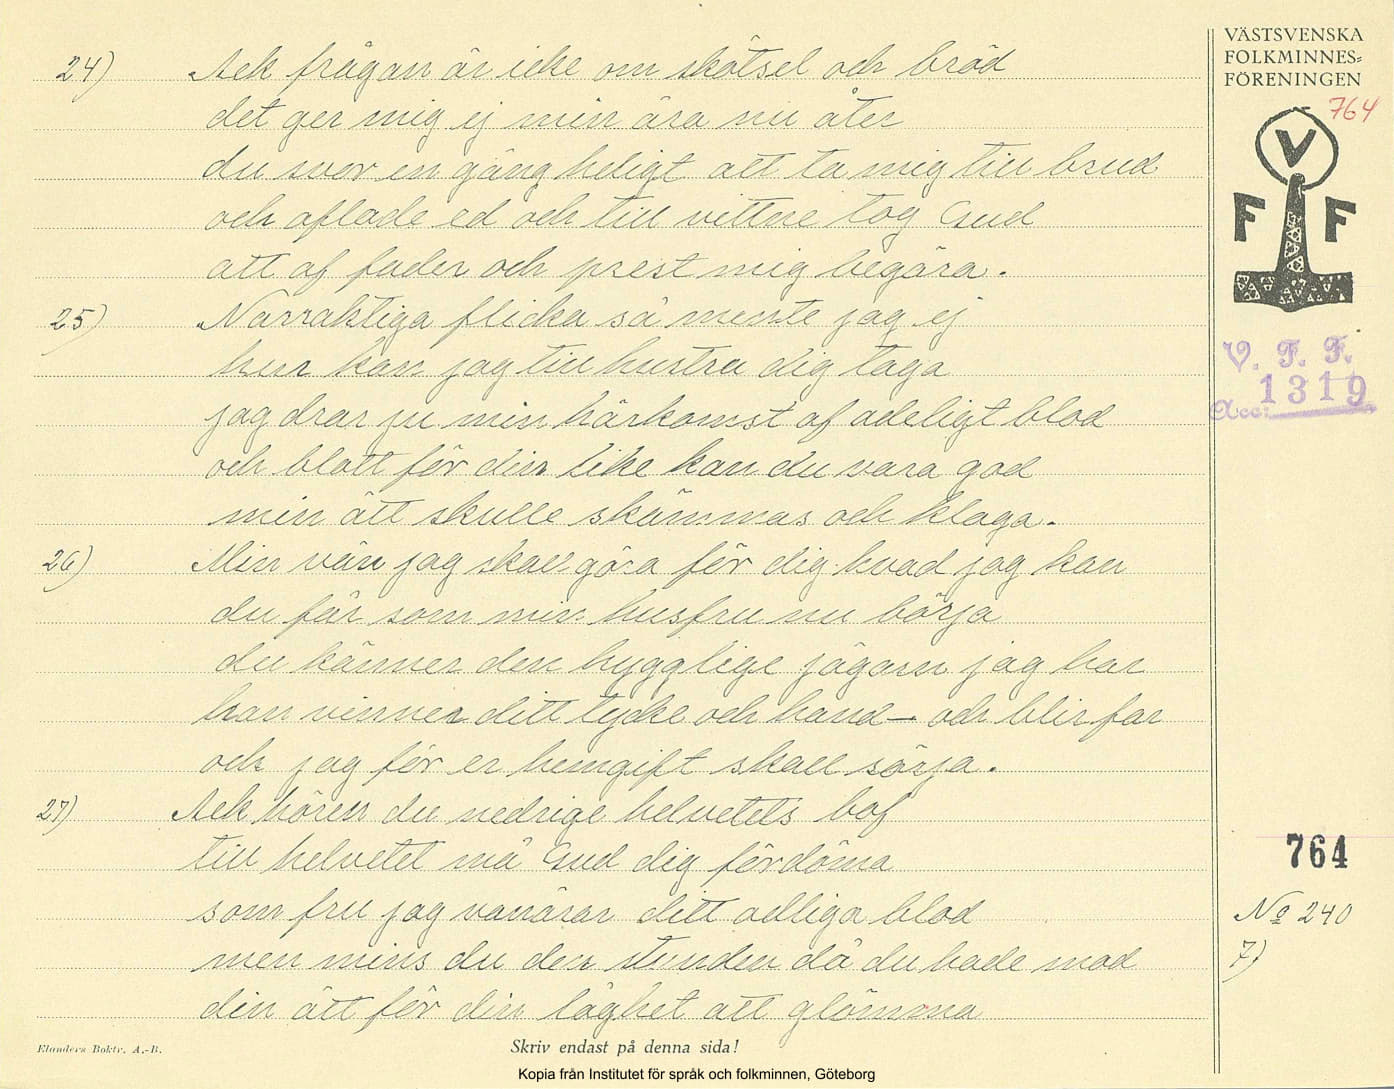 VÄSTSVENSKA
FOLKMINNES=
FÖRENINGEN
764
V
F F
V. F. F.
Acc: 1319
24) Ack frågan är icke om skötsel och bröd
det ger mig ej min ära nu åter
du svor en gång heligt att ta mig till brud
och aflade ed och till vittne tog Gud
att af fader och prest mig begära.
25) Narraktiga flicka så mente jag ej
hur kan jag till hustru dig taga
jag drar ju min härkomst af adeligt blod
och blott för din like kan du vara god
min ätt skulle skämmas och klaga.
26) Min vän jag skall göra för dig hvad jag kan
du får som min husfru nu börja
du känner den hygglige jägarn jag har
han vinner ditt tycke och hand – och blir far
och jag för er hemgift skall sörja.
27) Ack hören du nedrige helvetets bof
till helvetet må Gud dig fördöma
som fru jag vanärar ditt adliga blod
men mins du den stunden då du hade mod
din ätt för din låghet att glömma
764
No 240
7)
Elanders Boktr. A.-B.
Skriv endast på denna sida!
Kopia från Institutet för språk och folkminnen, Göteborg